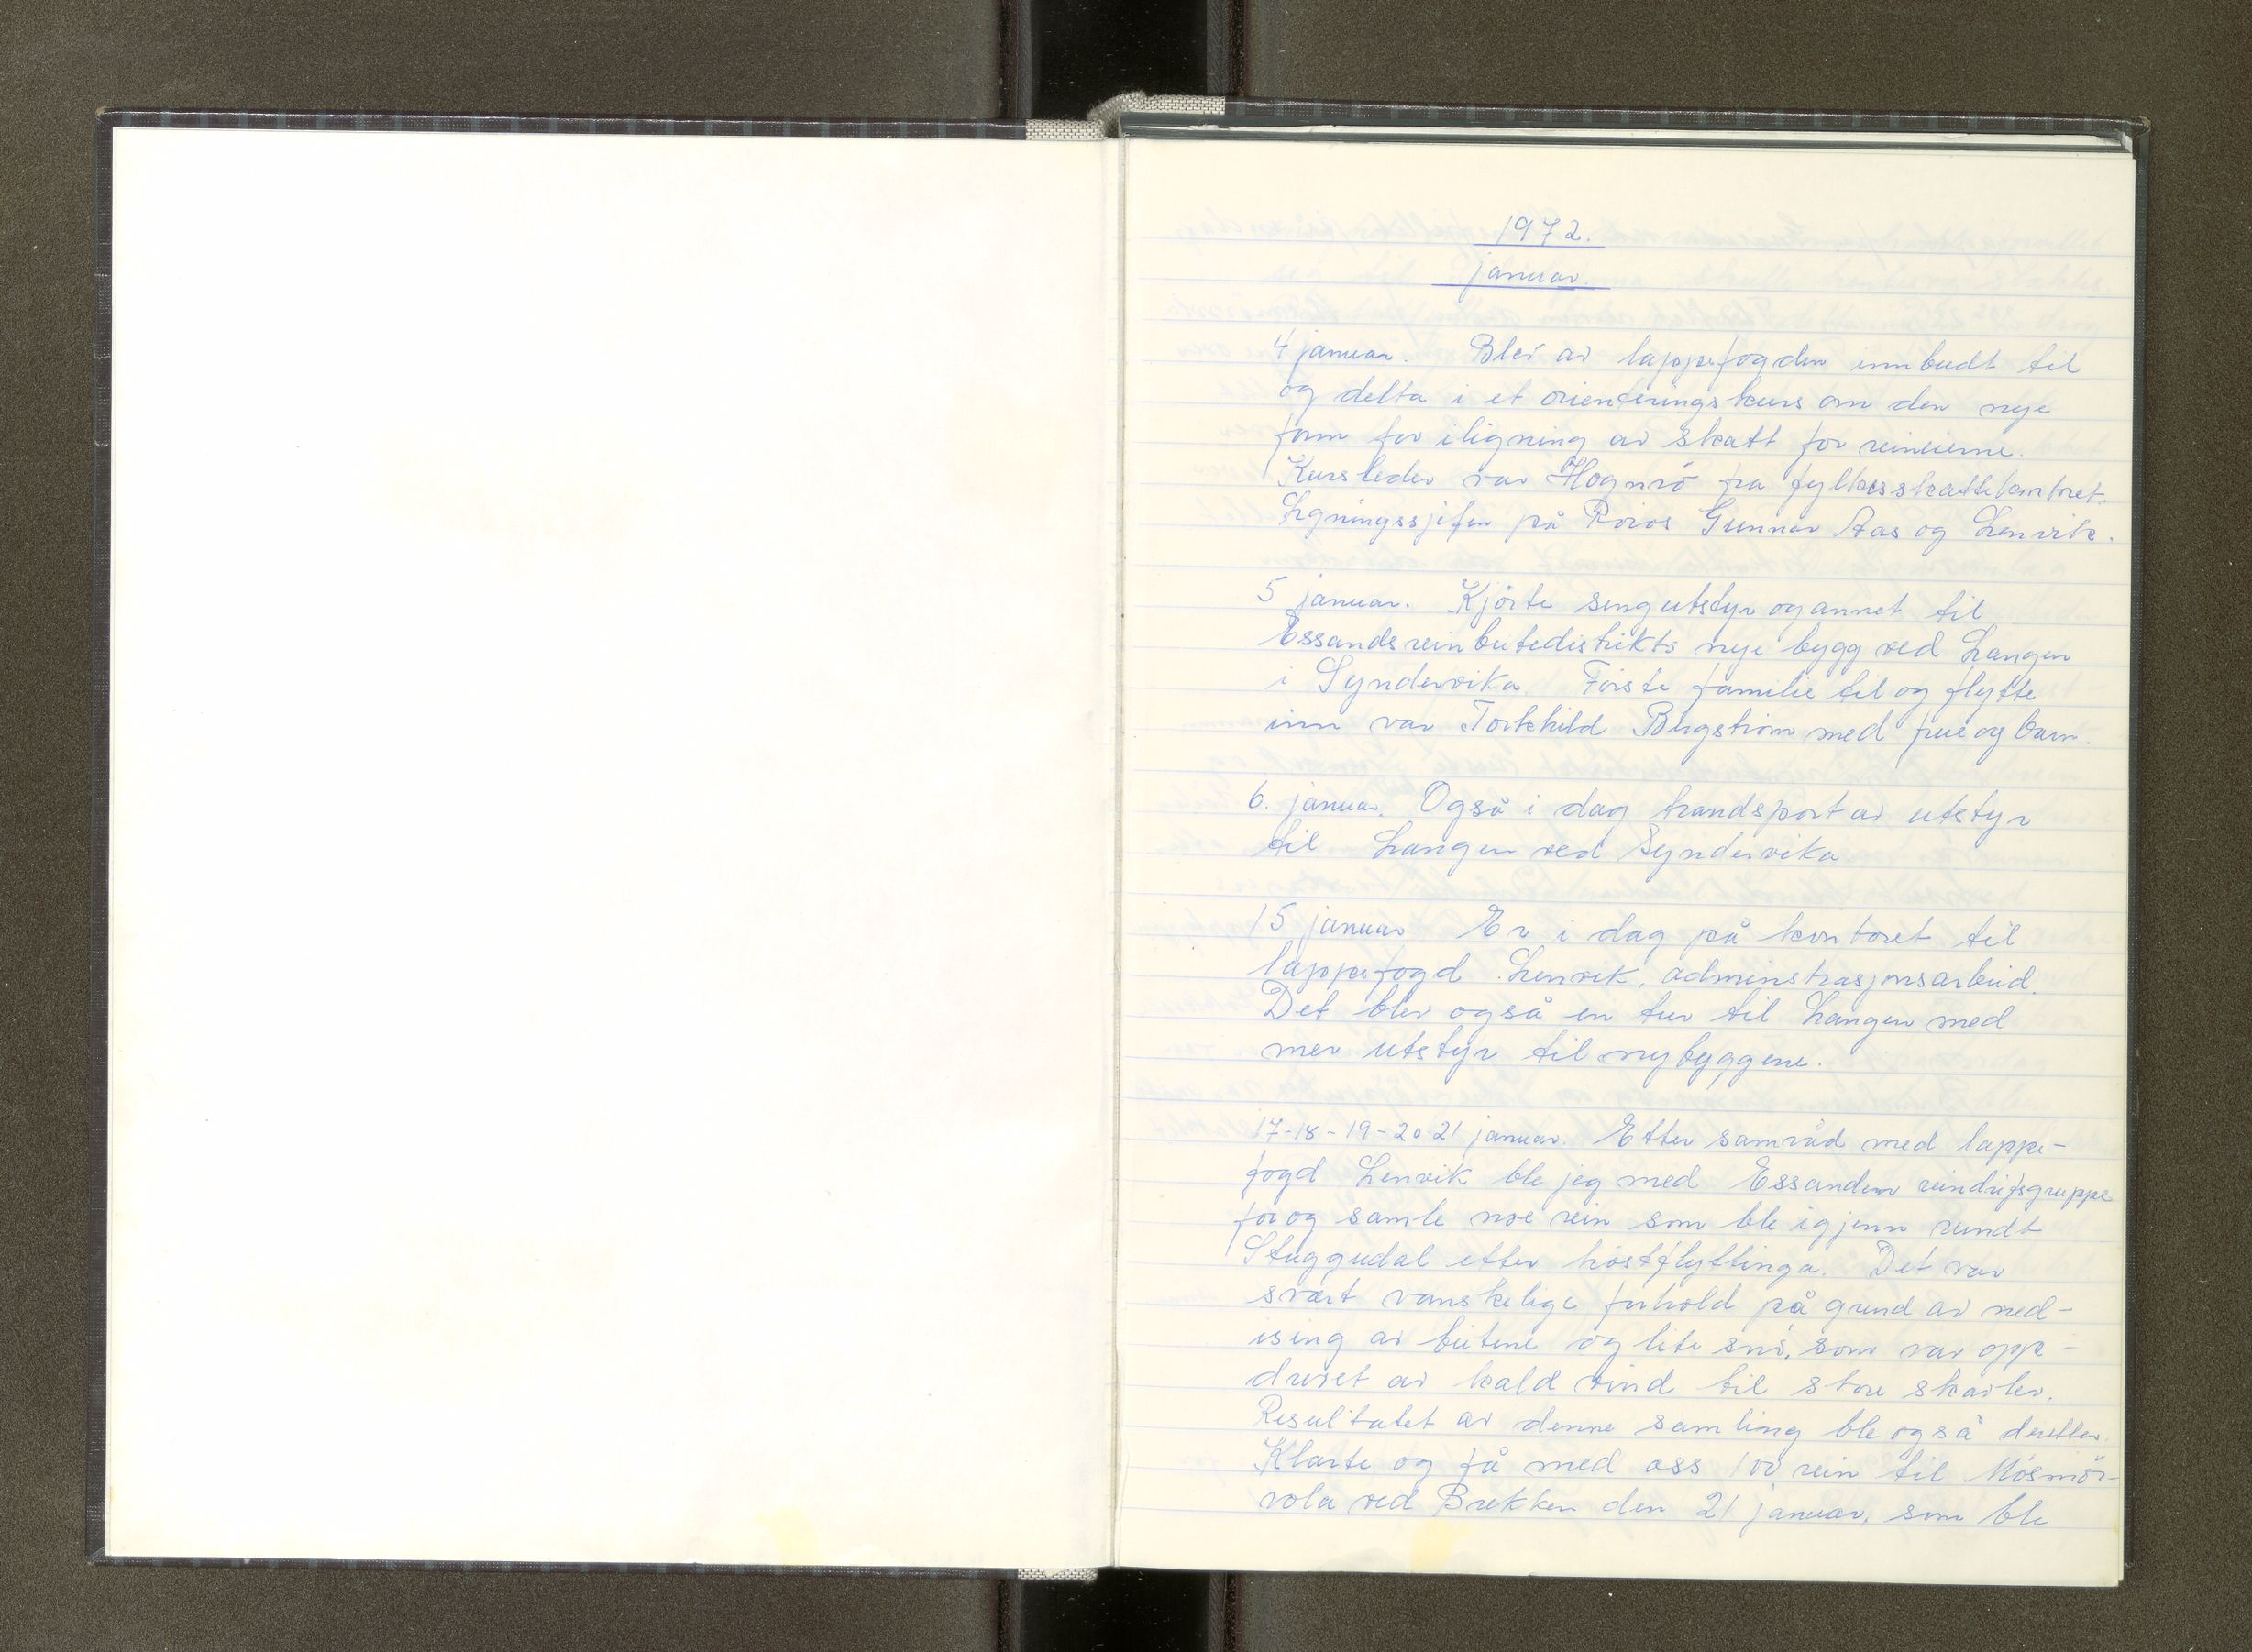 1972.
januar.
4 januar. Blei av lappefogden innbudt til
og delta i et orienteringskurs om den nye
form for iligning av skatt for reineierne.
Kursleder var Hognsö fra fylkesskattekontoret.
Ligningssjefen på Röros Gunnar Aas og Lenvik.
5 januar. Kjörte sengutstyr og annet til
Essandsreinbeitedistrikts nye bygg ved Langen
i Syndervika. Förste familie til og flytte
inn var Torkhild Bergström med frue og barn.
6. januar. Også i dag trandsport av utstyr
til Langen ved Syndervika.
15 januar Er i dag på kontoret til
lappefogd Lenvik, adminstrasjonsarbeid.
Det blev også en tur til Langen med
mer utstyr til nybyggene.
17-18-19-20-21 januar. Etter samråd med lappe-
fogd Lenvik ble jeg med Essanden reindrifsgruppe
for og samle noe rein som ble igjenn rundt
Stuggudal etter höstflyttinga. Det var
svært vanskelige forhold på grund av ned-
ising av beitene og lite snö, som var opp-
drevet av kald vind til store skavler.
Resultatet av denne samling ble også deretter.
Klarte og få med oss 100 rein til Mösmör-
vola ved Brekken den 21 januar, som ble